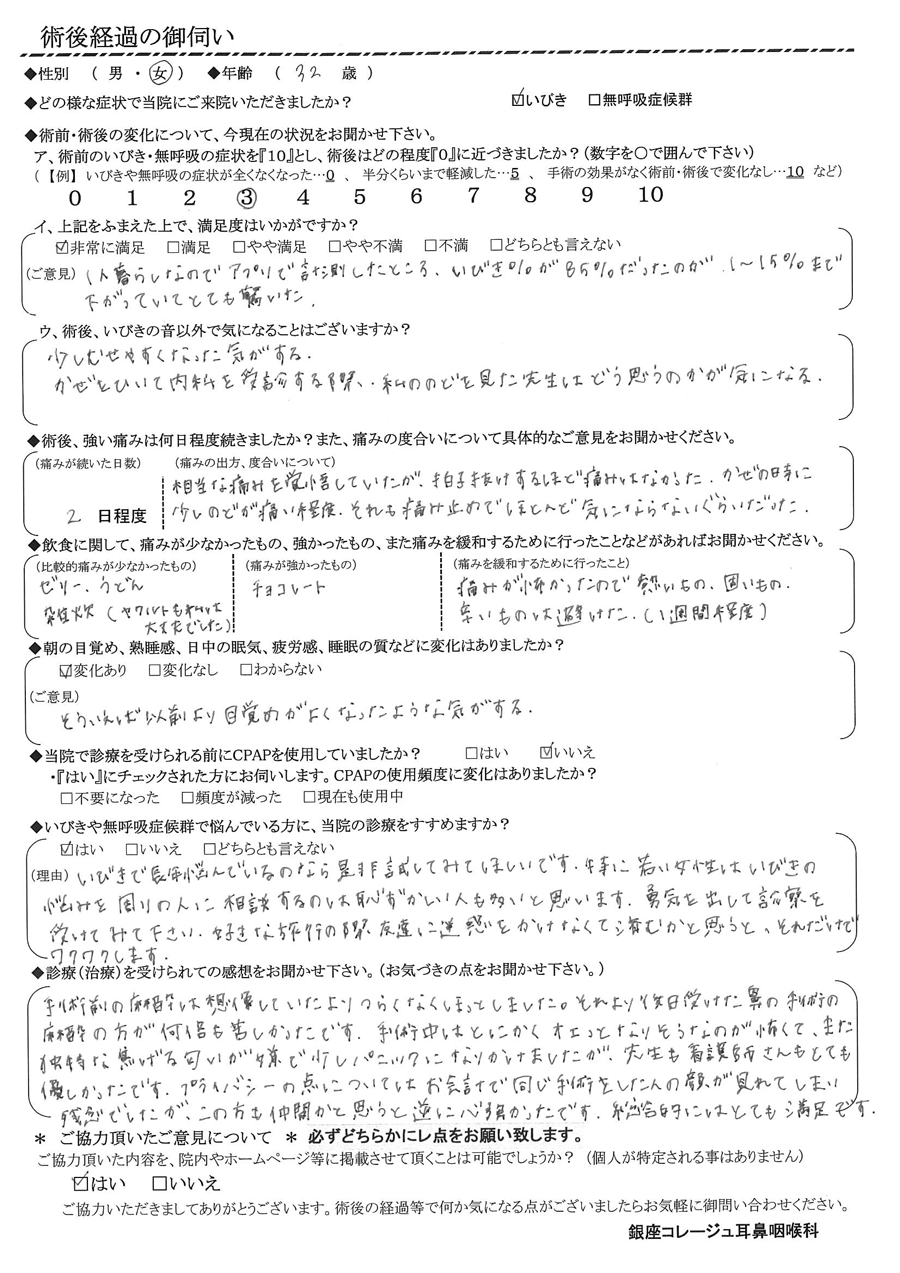 術後経過の御伺い
◆性別 （ 男 ・ 女 ） ◆年齢 （ 32 歳 ）
◆どの様な症状で当院にご来院いただきましたか？ ☑いびき □無呼吸症候群
◆術前・術後の変化について、今現在の状況をお聞かせ下さい。
ア、術前のいびき・無呼吸の症状を『10』とし、術後はどの程度『0』に近づきましたか？（数字を〇で囲んで下さい）
（【例】いびきや無呼吸の症状が全くなくなった…0 、 半分くらいまで軽減した…5 、 手術の効果がなく術前・術後で変化なし…10 など）
0 1 2 3 4 5 6 7 8 9 10
イ、上記をふまえた上で、満足度はいかがですか？
☑非常に満足 □満足 □やや満足 □やや不満 □不満 □どちらとも言えない
（ご意見） 1人暮らしなのでアプリで計測したところ、いびき%が85%だったのが、1〜15%まで
下がっていてとても驚いた。
ウ、術後、いびきの音以外で気になることはございますか？
少しむせやすくなった気がする。
かぜをひいて内科を受診する際、私ののどを見た先生はどう思うのかが気になる。
◆術後、強い痛みは何日程度続きましたか？また、痛みの度合いについて具体的なご意見をお聞かせください。
（痛みが続いた日数） （痛みの出方、度合いについて）
相当な痛みを覚悟していたが、拍子抜けするほど痛みはなかった。かぜの時に
2 日程度 少しのどが痛い程度。それも痛み止めでほとんど気にならないぐらいだった。
◆飲食に関して、痛みが少なかったもの、強かったもの、また痛みを緩和するために行ったことなどがあればお聞かせください。
（比較的痛みが少なかったもの） （痛みが強かったもの） （痛みを緩和するために行ったこと）
ゼリー、うどん チョコレート 痛みが怖かったので熱いもの、固いもの、
雑炊（ヤクルトも私は 辛いものは避けた。（1週間程度）
大丈夫でした）
◆朝の目覚め、熟睡感、日中の眠気、疲労感、睡眠の質などに変化はありましたか？
☑変化あり □変化なし □わからない
（ご意見）
そういえば以前より目覚めがよくなったような気がする。
◆当院で診療を受けられる前にCPAPを使用していましたか？ □はい ☑いいえ
・『はい』にチェックされた方にお伺いします。CPAPの使用頻度に変化はありましたか？
□不要になった □頻度が減った □現在も使用中
◆いびきや無呼吸症候群で悩んでいる方に、当院の診療をすすめますか？
☑はい □いいえ □どちらとも言えない
（理由） いびきで長年悩んでいるのなら是非試してみてほしいです。特に若い女性はいびきの
悩みを周りの人に相談するのは恥ずかしい人も多いと思います。勇気を出して診察を
受けてみて下さい。好きな旅行の際、友達に迷惑をかけなくて済むかと思うと、それだけで
ワクワクします。
◆診療（治療）を受けられての感想をお聞かせ下さい。（お気づきの点をお聞かせ下さい。）
手術前の麻酔は想像していたよりつらくなくほっとしました。それより後日受けた鼻の手術の
麻酔の方が何倍も苦しかったです。手術中はとにかくオエっとなりそうなのが怖くて、また
独特な焦げる匂いが嫌で少しパニックになりかけましたが、先生も看護師さんもとても
優しかったです。プライバシーの点についてはお会計で同じ手術をした人の顔が見れてしまい
残念でしたが、この方も仲間かと思うと逆に心強かったです。総合的にはとても満足です。
＊ ご協力頂いたご意見について ＊ 必ずどちらかにレ点をお願い致します。
ご協力頂いた内容を、院内やホームページ等に掲載させて頂くことは可能でしょうか？（個人が特定される事はありません）
☑はい □いいえ
ご協力いただきましてありがとうございます。術後の経過等で何か気になる点がございましたらお気軽に御問い合わせください。
銀座コレージュ耳鼻咽喉科